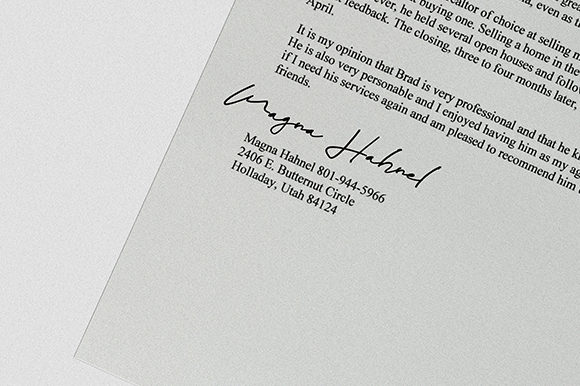 great
realtor of choice at selling m
, even as
k buying one. Selling a home in the
ever, he held several open houses and follow
feedback. The closing, three to four months later,
April.
It is my opinion that Brad is very professional and that he k
He is also very personable and I enjoyed having him as my ag
if I need his services again and am pleased to recommend him
friends.
Magna Hahnel
Magna Hahnel 801-944-5966
2406 E. Butternut Circle
Holladay, Utah 84124